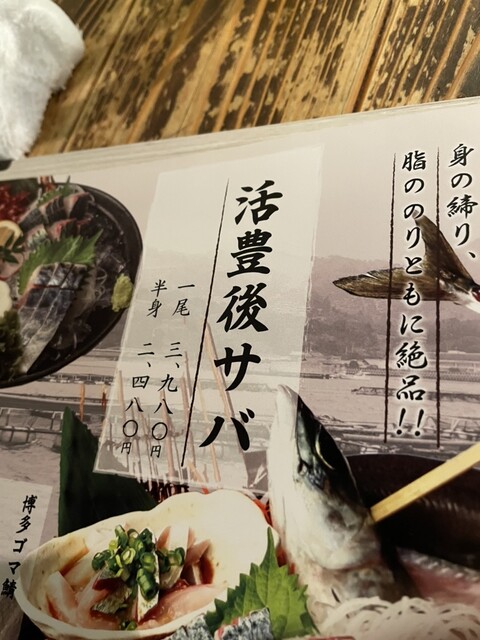 身の締り、
脂ののりともに絶品!!
活豊後サバ
一尾 三、九八〇円
半身 二、四八〇円
博多ゴマ鯖